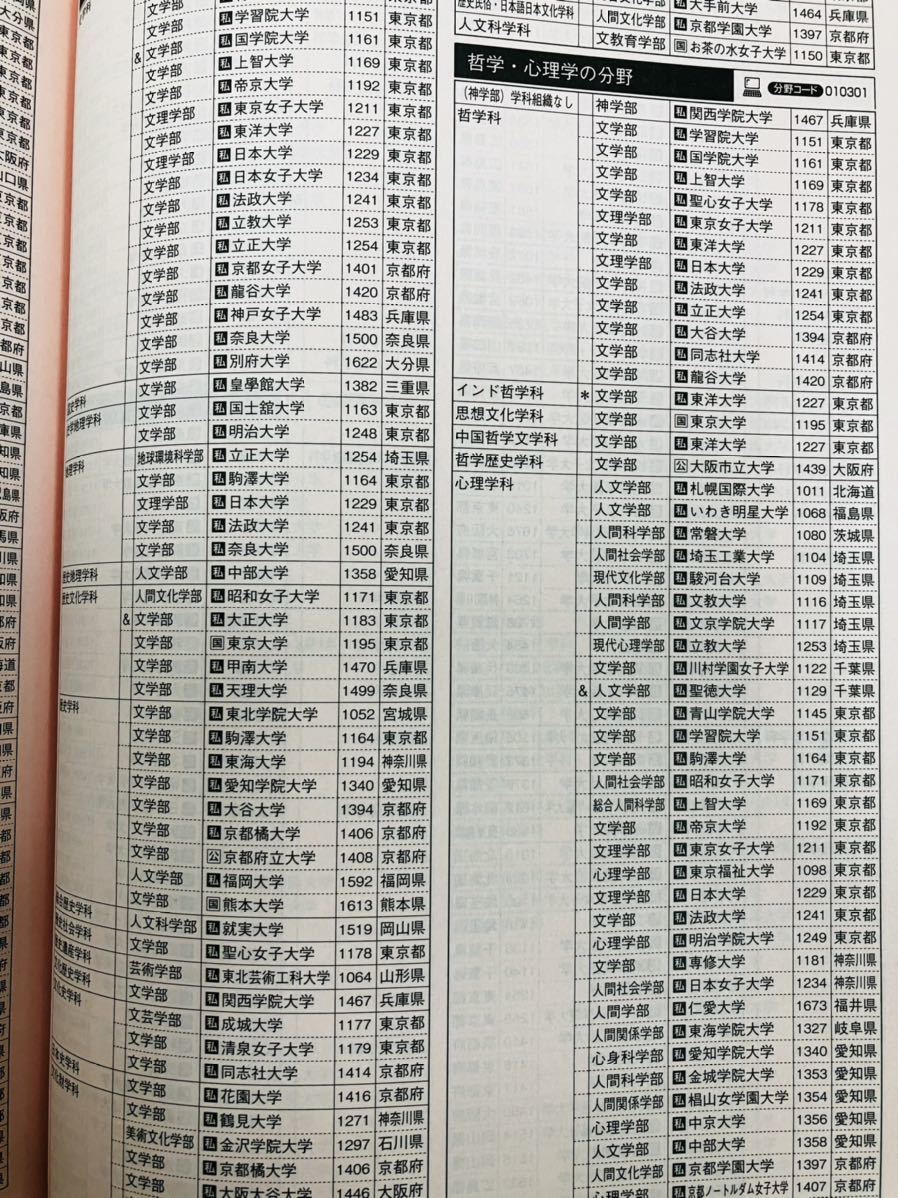 文学部 私 学習院大学 1151 東京都
文学部 私 国学院大学 1161 東京都
& 文学部 私 上智大学 1169 東京都
文学部 私 帝京大学 1192 東京都
文理学部 私 東京女子大学 1211 東京都
文学部 私 東洋大学 1227 東京都
文理学部 私 日本大学 1229 東京都
文学部 私 日本女子大学 1234 東京都
文学部 私 法政大学 1241 東京都
文学部 私 立教大学 1253 東京都
文学部 私 立正大学 1254 東京都
文学部 私 京都女子大学 1401 京都府
文学部 私 龍谷大学 1420 京都府
文学部 私 神戸女子大学 1483 兵庫県
文学部 私 奈良大学 1500 奈良県
文学部 私 別府大学 1622 大分県
文学部 私 皇學館大学 1382 三重県
史学地理学科 文学部 私 国士舘大学 1163 東京都
文学部 私 明治大学 1248 東京都
地理学科 地球環境科学部 私 立正大学 1254 埼玉県
文学部 私 駒澤大学 1164 東京都
文理学部 私 日本大学 1229 東京都
文学部 私 法政大学 1241 東京都
文学部 私 奈良大学 1500 奈良県
歴史地理学科 人文学部 私 中部大学 1358 愛知県
歴史文化学科 人間文化学部 私 昭和女子大学 1171 東京都
& 文学部 私 大正大学 1183 東京都
文学部 国 東京大学 1195 東京都
文学部 私 甲南大学 1470 兵庫県
文学部 私 天理大学 1499 奈良県
歴史学科 文学部 私 東北学院大学 1052 宮城県
文学部 私 駒澤大学 1164 東京都
文学部 私 東海大学 1194 神奈川県
文学部 私 愛知学院大学 1340 愛知県
文学部 私 大谷大学 1394 京都府
文学部 私 京都橘大学 1406 京都府
文学部 公 京都府立大学 1408 京都府
人文学部 私 福岡大学 1592 福岡県
文学部 国 熊本大学 1613 熊本県
総合歴史学科 人文科学部 私 就実大学 1519 岡山県
歴史社会学科 文学部 私 聖心女子大学 1178 東京都
歴史遺産学科 芸術学部 私 東北芸術工科大学 1064 山形県
文化歴史学科 文学部 私 関西学院大学 1467 兵庫県
文化史学科 文芸学部 私 成城大学 1177 東京都
文学部 私 清泉女子大学 1179 東京都
文学部 私 同志社大学 1414 京都府
文学部 私 花園大学 1416 京都府
文化財学科 文学部 私 鶴見大学 1271 神奈川県
美術文化学部 私 金沢学院大学 1297 石川県
文学部 私 京都橘大学 1406 京都府
文学部 私 大阪大谷大学 1446 大阪府
私 大手前大学 1464 兵庫県
歴史民俗・日本語日本文化学科 人間文化学部 私 京都学園大学 1397 京都府
人文科学科 文教育学部 国 お茶の水女子大学 1150 東京都
哲学・心理学の分野 分野コード 010301
(神学部)学科組織なし 神学部 私 関西学院大学 1467 兵庫県
哲学科 文学部 私 学習院大学 1151 東京都
文学部 私 国学院大学 1161 東京都
文学部 私 上智大学 1169 東京都
文学部 私 聖心女子大学 1178 東京都
文理学部 私 東京女子大学 1211 東京都
文学部 私 東洋大学 1227 東京都
文理学部 私 日本大学 1229 東京都
文学部 私 法政大学 1241 東京都
文学部 私 立正大学 1254 東京都
文学部 私 大谷大学 1394 京都府
文学部 私 同志社大学 1414 京都府
文学部 私 龍谷大学 1420 京都府
インド哲学科 * 文学部 私 東洋大学 1227 東京都
思想文化学科 文学部 国 東京大学 1195 東京都
中国哲学文学科 文学部 私 東洋大学 1227 東京都
哲学歴史学科 文学部 公 大阪市立大学 1439 大阪府
心理学科 人文学部 私 札幌国際大学 1011 北海道
人文学部 私 いわき明星大学 1068 福島県
人間科学部 私 常磐大学 1080 茨城県
人間社会学部 私 埼玉工業大学 1104 埼玉県
現代文化学部 私 駿河台大学 1109 埼玉県
人間科学部 私 文教大学 1116 埼玉県
人間学部 私 文京学院大学 1117 埼玉県
現代心理学部 私 立教大学 1253 埼玉県
文学部 私 川村学園女子大学 1122 千葉県
& 人文学部 私 聖徳大学 1129 千葉県
文学部 私 青山学院大学 1145 東京都
文学部 私 学習院大学 1151 東京都
文学部 私 駒澤大学 1164 東京都
人間社会学部 私 昭和女子大学 1171 東京都
総合人間科学部 私 上智大学 1169 東京都
文学部 私 帝京大学 1192 東京都
文理学部 私 東京女子大学 1211 東京都
心理学部 私 東京福祉大学 1098 東京都
文理学部 私 日本大学 1229 東京都
文学部 私 法政大学 1241 東京都
心理学部 私 明治学院大学 1249 東京都
文学部 私 専修大学 1181 神奈川県
人間社会学部 私 日本女子大学 1234 神奈川県
人間学部 私 仁愛大学 1673 福井県
人間関係学部 私 東海学院大学 1327 岐阜県
心身科学部 私 愛知学院大学 1340 愛知県
人間科学部 私 金城学院大学 1353 愛知県
人間関係学部 私 椙山女学園大学 1354 愛知県
心理学部 私 中京大学 1356 愛知県
人文学部 私 中部大学 1358 愛知県
人間文化学部 私 京都学園大学 1397 京都府
心理学部 私 京都ノートルダム女子大学 1407 京都府